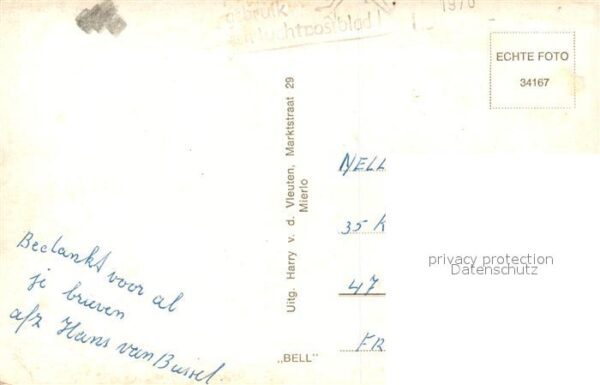 gebruik
luchtpostblad!
1970
ECHTE FOTO
34167
Uitg. Harry v. d. Vleuten, Marktstraat 29
Mierlo
NELL
35 K
47
FR
privacy protection
Datenschutz
Bedankt voor al
je brieven
afz Hans van Bussel
„BELL"